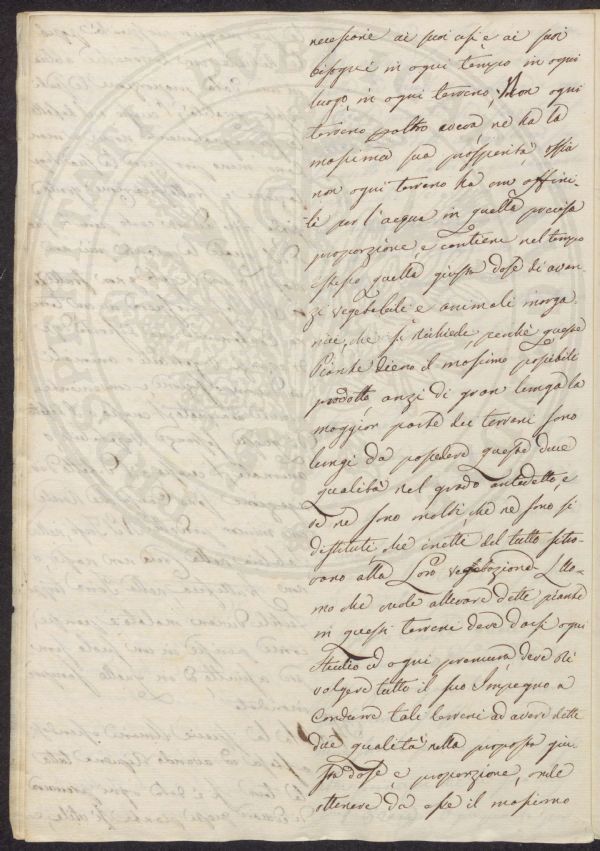 necessarie ai suoi usi e ai suoi
bisogni in ogni tempo in ogni
luogo, in ogni terreno, Non ogni
terreno ne ha la
massima sua prosperità, ossia
non ogni terreno ha un affini-
tà per l'acqua in quella preciosa
proporzione, e contiene nel tempo
istesso quella giusta dose di avan-
zi vegetabili e animali inorga
nici, che si richiede, perchè queste
Piante dieno il massimo possibile
prodotto, anzi di gran lunga la
maggior parte dei terreni sono
lungi da possedere queste due
qualità nel grado antedetto, e
ve ne sono molti, che ne sono sì
destituti, che inetti del tutto si tro-
vano alla Loro vegetazione. L'uo-
mo che vuole allevare dette piante
in questi terreni deve darsi ogni
studio ed ogni premura, deve ri
volgere tutto il suo Impegno a
condurre tali terreni ad avere dette
due qualità nella proposta giu
sta dose, e proporzione, onde
ottenere da esse il massimo